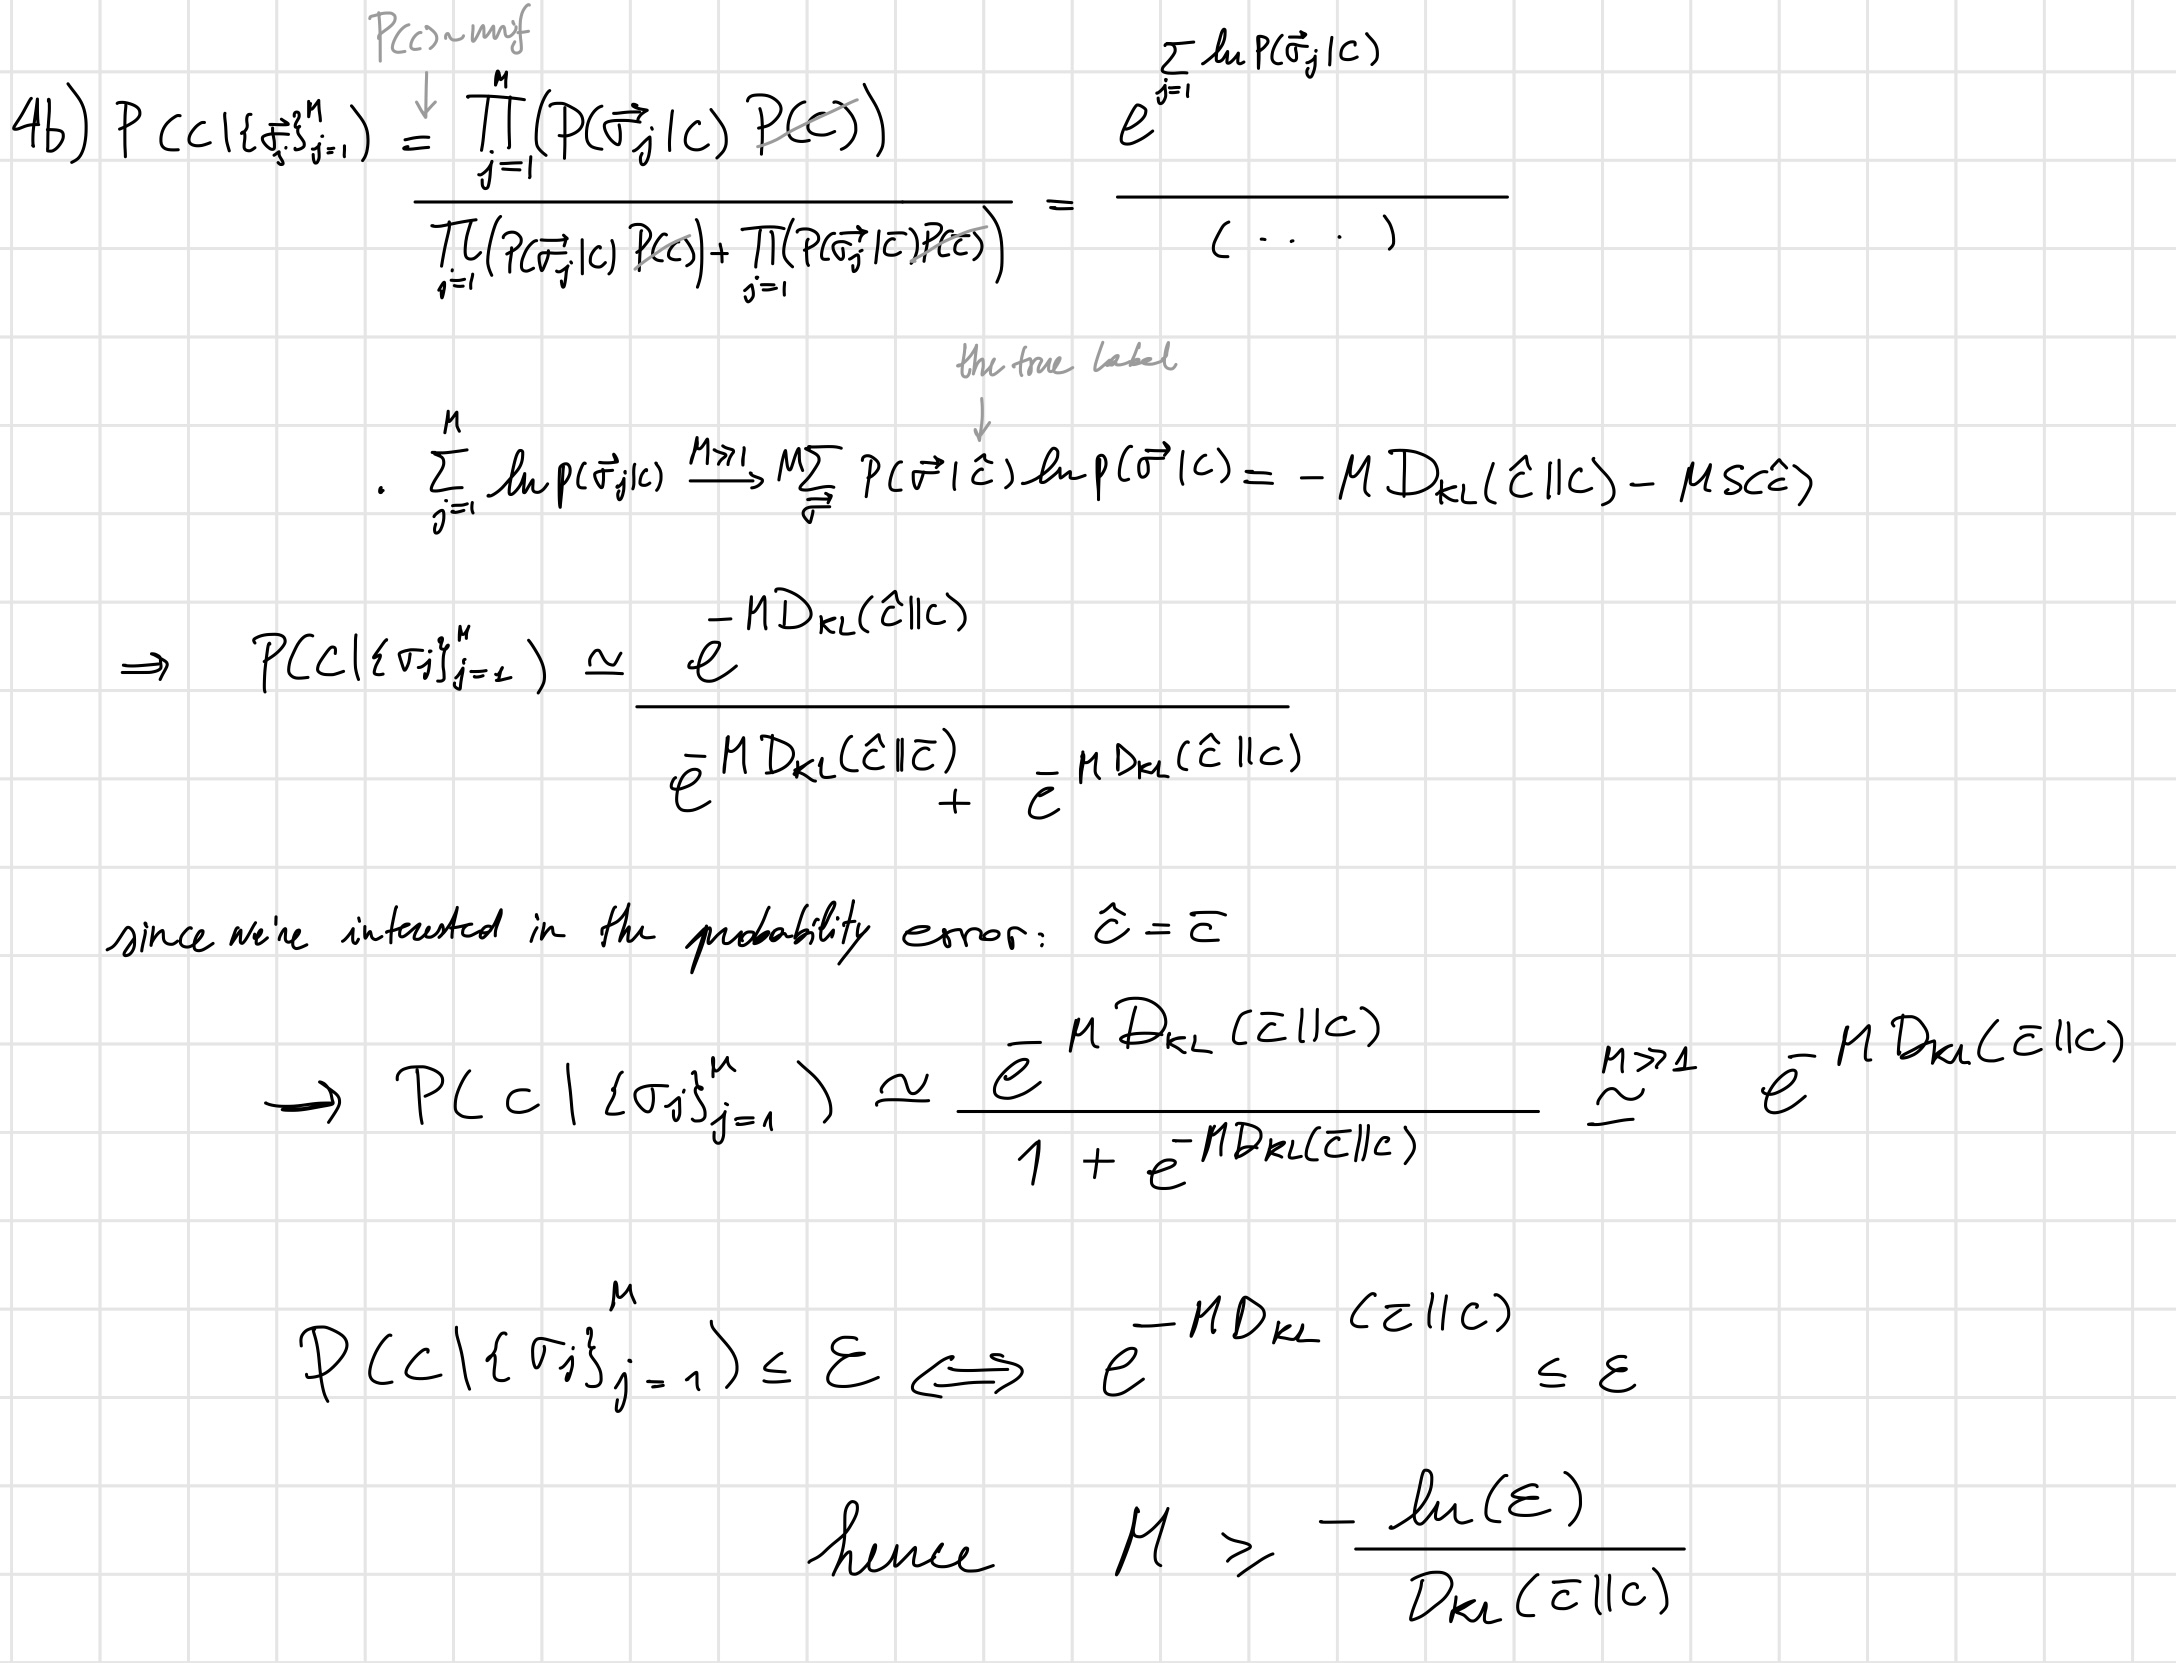 P(c) ~ unif
4b) P(c|{σ⃗_j}_{j=1}^M) = ∏_{j=1}^M (P(σ⃗_j|c) P(c)) / (∏_{j=1} (P(σ⃗_j|c) P(c)) + ∏_{j=1} (P(σ⃗_j|c̄) P(c̄))) = e^{∑_{j=1} ln P(σ⃗_j|c)} / (. . . .)
the true label
. ∑_{j=1}^M ln p(σ⃗_j|c) →^{M≫1} M∑_{σ⃗} P(σ⃗|ĉ) ln p(σ⃗|c) = -M D_KL(ĉ||c) - M S(ĉ)
⇒ P(c|{σ_j}_{j=1}^M) ≃ e^{-M D_KL(ĉ||c)} / (e^{-M D_KL(ĉ||c̄)} + e^{-M D_KL(ĉ||c)})
since we're interested in the probability error: ĉ = c̄
→ P(c|{σ_j}_{j=1}^M) ≃ e^{-M D_KL(c̄||c)} / (1 + e^{-M D_KL(c̄||c)}) ≃^{M≫1} e^{-M D_KL(c̄||c)}
P(c|{σ_j}_{j=1}^M) ≤ ε ⟺ e^{-M D_KL(c̄||c)} ≤ ε
hence M ≥ - ln(ε) / D_KL(c̄||c)